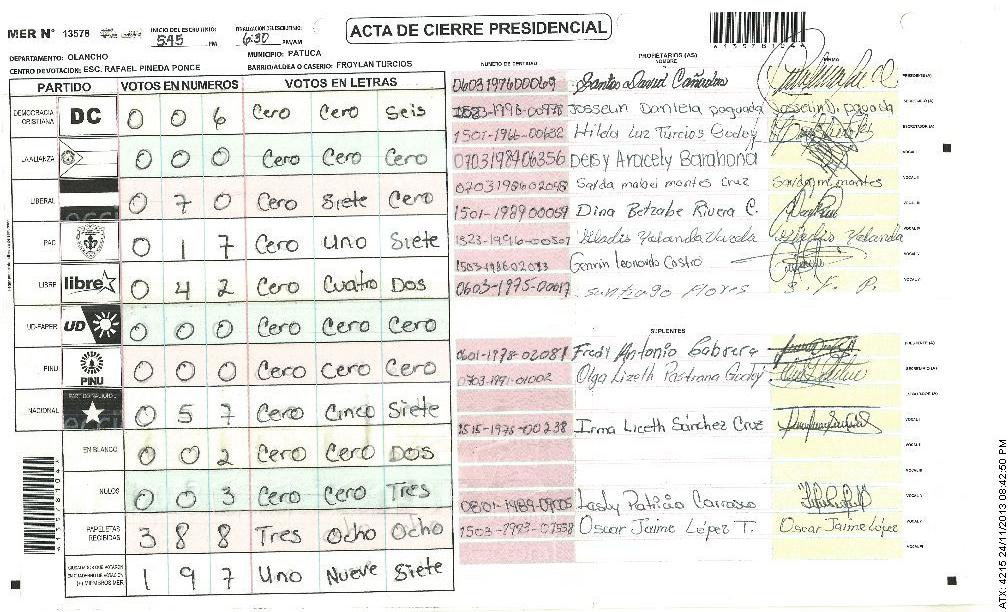 MER N° 13578
INICIO DEL ESCRUTINIO: 5:45 PM
FINALIZACION DEL ESCRUTINIO: 6:30 PM/AM
ACTA DE CIERRE PRESIDENCIAL
A13578104A
DEPARTAMENTO: OLANCHO
MUNICIPIO: PATUCA
CENTRO DE VOTACION: ESC. RAFAEL PINEDA PONCE
BARRIO/ALDEA O CASERIO: FROYLAN TURCIOS
PARTIDO VOTOS EN NUMEROS VOTOS EN LETRAS
DEMOCRACIA CRISTIANA DC 0 0 6 Cero Cero Seis
LA ALIANZA 0 0 0 Cero Cero Cero
LIBERAL 0 7 0 Cero Siete Cero
PAC 0 1 7 Cero Uno Siete
LIBRE libre 0 4 2 Cero Cuatro Dos
UD-FAPER UD 0 0 0 Cero Cero Cero
PINU PINU 0 0 0 Cero Cero Cero
NACIONAL 0 5 7 Cero Cinco Siete
EN BLANCO 0 0 2 Cero Cero Dos
NULOS 0 0 3 Cero Cero Tres
PAPELETAS RECIBIDAS 3 8 8 Tres Ocho Ocho
CIUDADANOS QUE VOTARON EN CUADERNO DE VOTACION (+) MIEMBROS MER 1 9 7 Uno Nueve Siete
NUMERO DE IDENTIDAD PROPIETARIOS (AS) NOMBRE FIRMA
0603197600069 Santos David PRESIDENTE(A)
Josselin Daniela poguada SECRETARIO (A)
1501-1966-00632 Hilda Luz Turcios Godoy ESCRUTADOR (A)
0703198906356 Deisy Aracely Barahona VOCAL I
0703198602048 Saida mabel montes cruz Saida m. montes VOCAL II
1501-1989-00059 Dina Betzabe Rivera C. VOCAL III
Gladis Yolanda VOCAL IV
Gennin Leonardo Castro VOCAL V
0603-1975-00017 Santiago Flores S. F. VOCAL VI
SUPLENTES
0601-1978-02081 Fredi Antonio Cabrera PRESIDENTE (A)
0703-1991-01002 Olga Lizeth Pastrana Godoy SECRETARIO (A)
ESCRUTADOR (A)
1515-1975-00238 Irma Liceth Sánchez Cruz VOCAL I
VOCAL II
VOCAL III
0801-1989-09005 Lesly Patricia Carrasco VOCAL IV
1503-1993-01558 Oscar Jaime López T. Oscar Jaime López VOCAL V
VOCAL VI
ATX: 4215 24/11/2013 08:42:50 PM